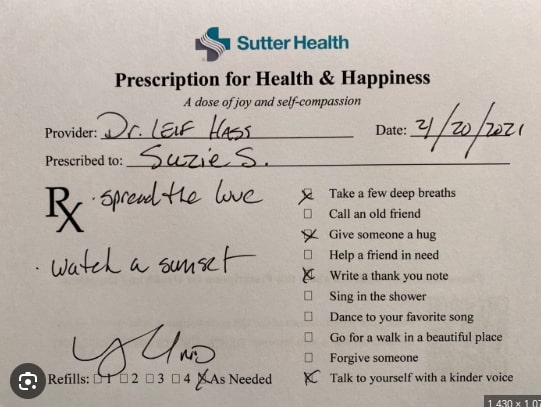 Sutter Health
Prescription for Health & Happiness
A dose of joy and self-compassion
Provider: Dr. LEIF HASS Date: 2/20/2021
Prescribed to: Suzie S.
Rx · spread the love
· watch a sunset
Take a few deep breaths
Call an old friend
Give someone a hug
Help a friend in need
Write a thank you note
Sing in the shower
Dance to your favorite song
Go for a walk in a beautiful place
Forgive someone
Talk to yourself with a kinder voice
Refills: 1 2 3 4 As Needed